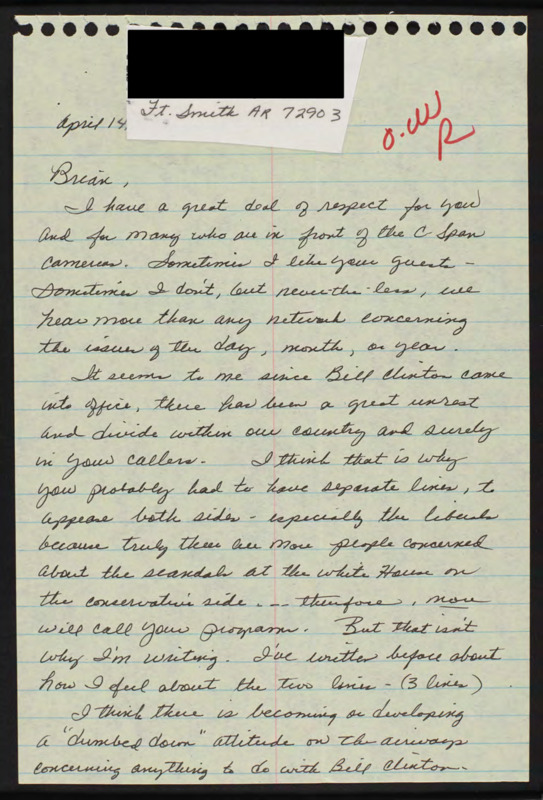 Ft. Smith AR 72903
April 14
O.W
R
Brian,
I have a great deal of respect for you
and for many who are in front of the C Span
cameras. Sometimes I like your guests -
sometimes I don't, but never-the-less, we
hear more than any network concerning
the issues of the day, month, or year.
It seems to me since Bill Clinton came
into office, there has been a great unrest
and divide within our country and surely
in your callers. I think that is why
you probably had to have separate lines, to
appease both sides - especially the liberals
because truly there are more people concerned
about the scandals at the White House on
the conservative side. -- therefore, more
will call your program. But that isn't
why I'm writing. I've written before about
how I feel about the two lines - (3 lines)
I think there is becoming or developing
a "dumbed down" attitude on the airways
concerning anything to do with Bill Clinton.